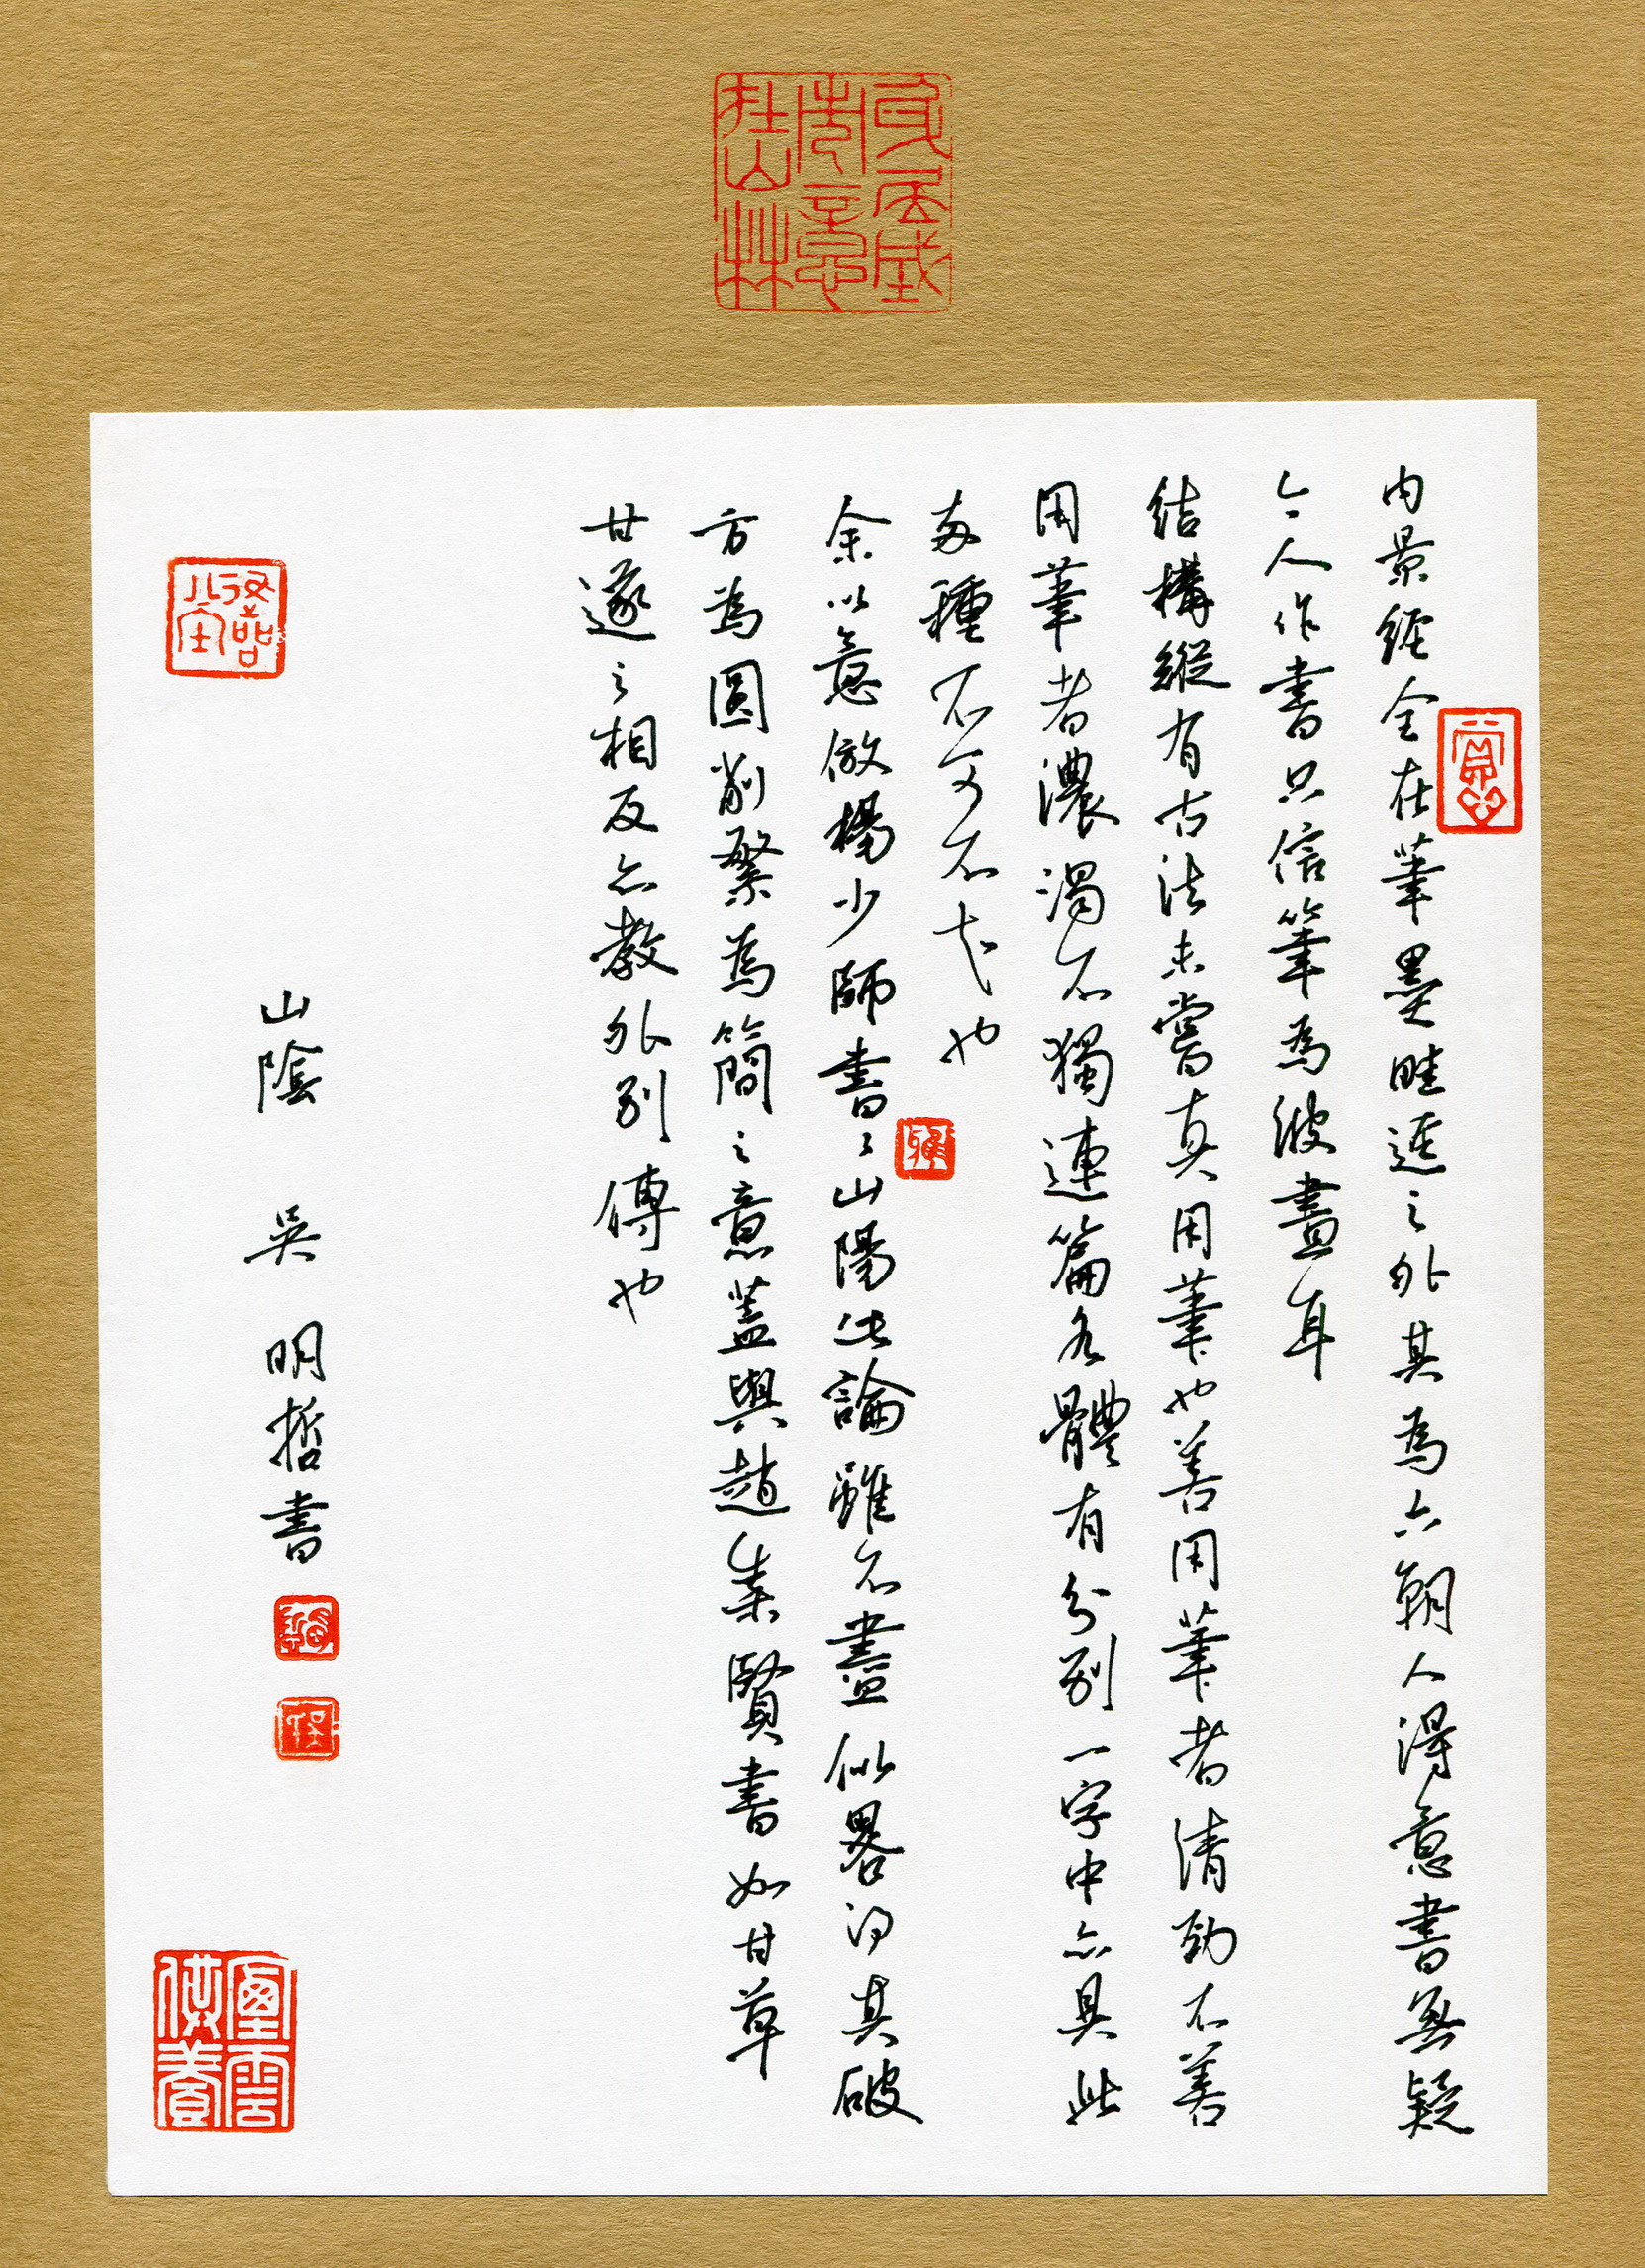 身居城市意在山林
賞心
内景經全在筆墨畦逕之外其為六朝人得意書無疑
今人作書只信筆為波畫耳
結構縱有古法未嘗真用筆也善用筆者清勁不善
用筆者濃濁不獨連篇各體有分別一字中亦具此
兩種不可不知也
余以意倣楊少師書〻山陽此論雖不盡似畧得其破
方為圓削繁為簡之意蓋與趙集賢書如甘草
甘遂之相反亦教外別傳也
山陰 吳 明哲書
煙雲供養